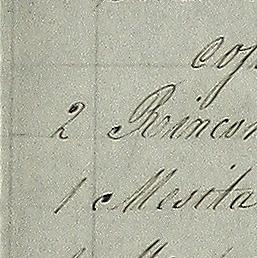 cop
2 Rincon
1 Mesita